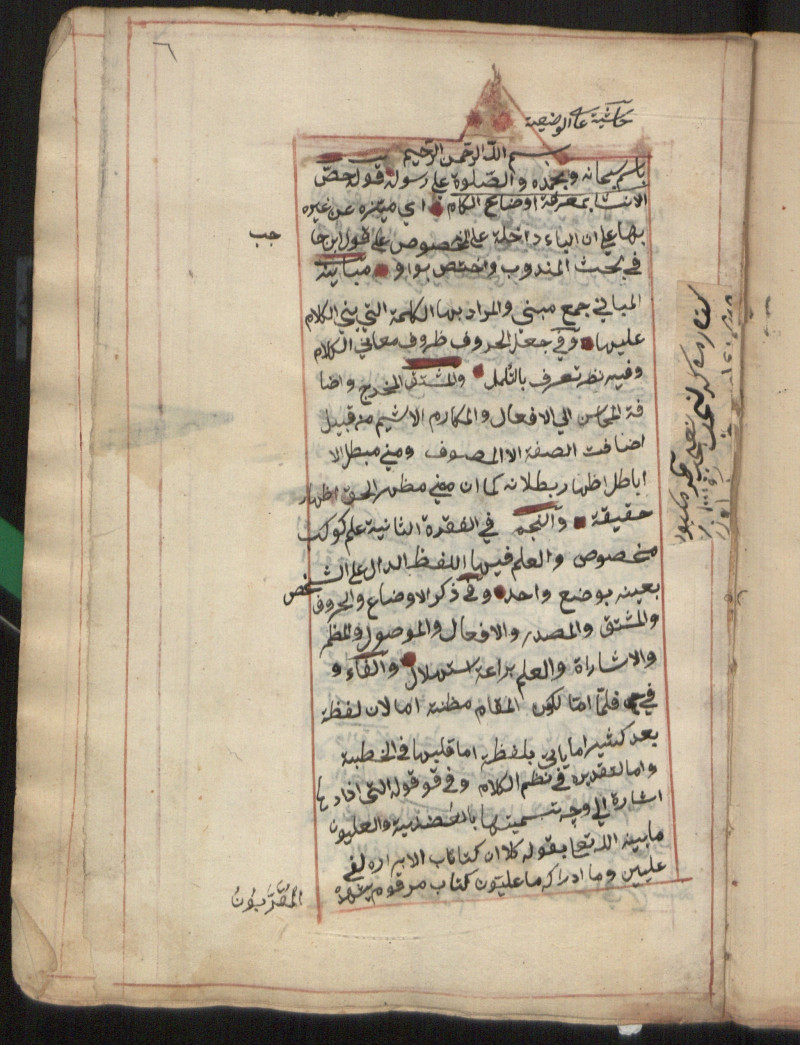 ٦
حاشية على الوضعية
بسم الله الرحمن الرحيم
باسم سبحانه وبحمده والصلوة على رسوله قوله خص
الانسان بمعرفة اوضاع الكلام اي ميزه عن غيره
بها على ان الباء داخلة على المخصوص على قول ابن حا
جب
في بحث المندوب واختص بوا و مباينه
المباني جمع مبني والمراد بها الكلمة التي يبني الكلام
عليها وفي جعل الحروف ظروف معاني الكلام
وفيه نظر تعرف بالتأمل والمشتق المخرج واضا
فة المحاسن الي الافعال والمكارم الا شيم من قبيل
اضافت الصفة الا الموصوف ومني مبطل الا
اباطل اظهار بطلانه كما ان مني مظهر الحق اظهار
حقيقة والنجم في الفقرة الثانية علم كوكب
مخصوص والعلم فيها اللفظ الدال على الشخص
بعينه بوضع واحد وفي ذكر الاوضاع والحروف
والمشتق والمصدر والافعال والموصول والمظم
والاشاراة والعلم براعة استهلال والفاء و
في فلما اما لكون المقام مظنة اما لان لفظة
بعد كثيرا ما يأتي بلفظة اما قليها في الخطبة
واما لتقديره في نظم الكلام وفي قو قوله التي افادها
اشارة الي وجه تسميتها بالعضدية والعليون
ما بينه الله تعا بقوله كلا ان كتاب الابراره لفي
عليين وما ادراكه ما عليّون كتاب مرقوم يشهده
المُقَرَّبُونُ